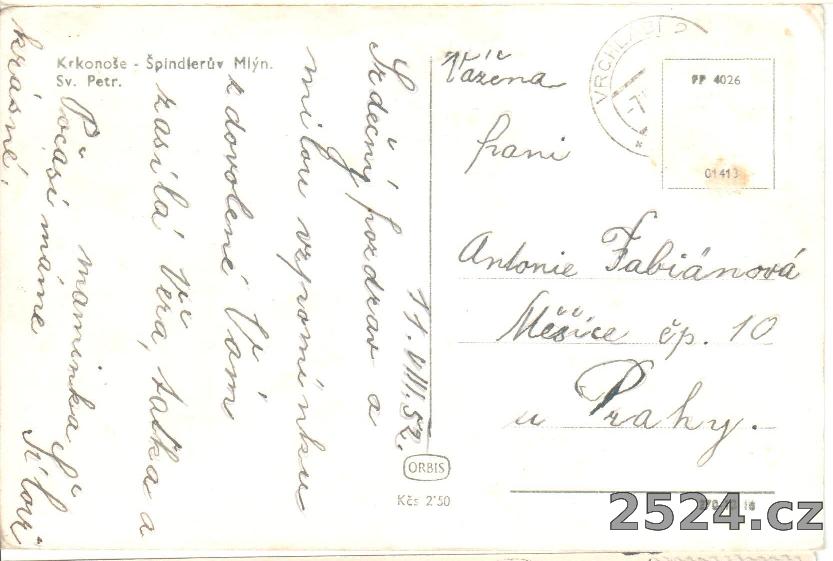 Krkonoše - Špindlerův Mlýn.
Sv. Petr.
11.VIII.52.
Srdečný pozdrav a
milou vzpomínku
z dovolené Vám
zasílá Věra, taťka a
maminka
Počasí máme
krásné.
Vážená
paní
Antonie Fabiánová
Měšice čp. 10
u Prahy.
VRCHLABÍ 2
-7.
PF 4026
01413
ORBIS
Kčs 2'50
2524.cz